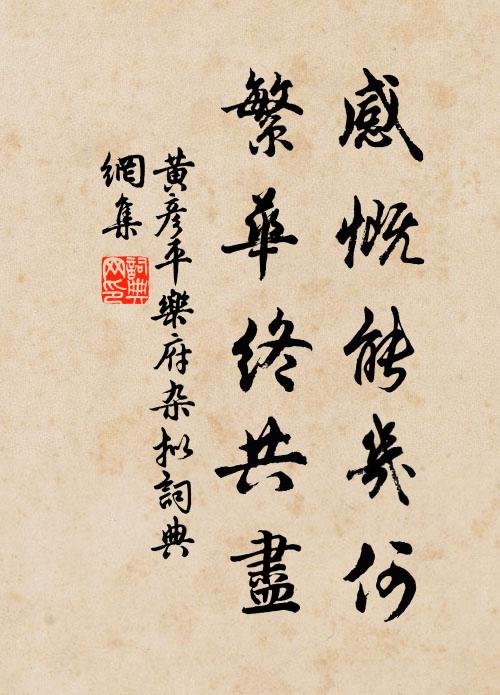 感慨能幾何
繁華終共盡
黃彥平樂府杂拟詞典
網集
詞典
网印